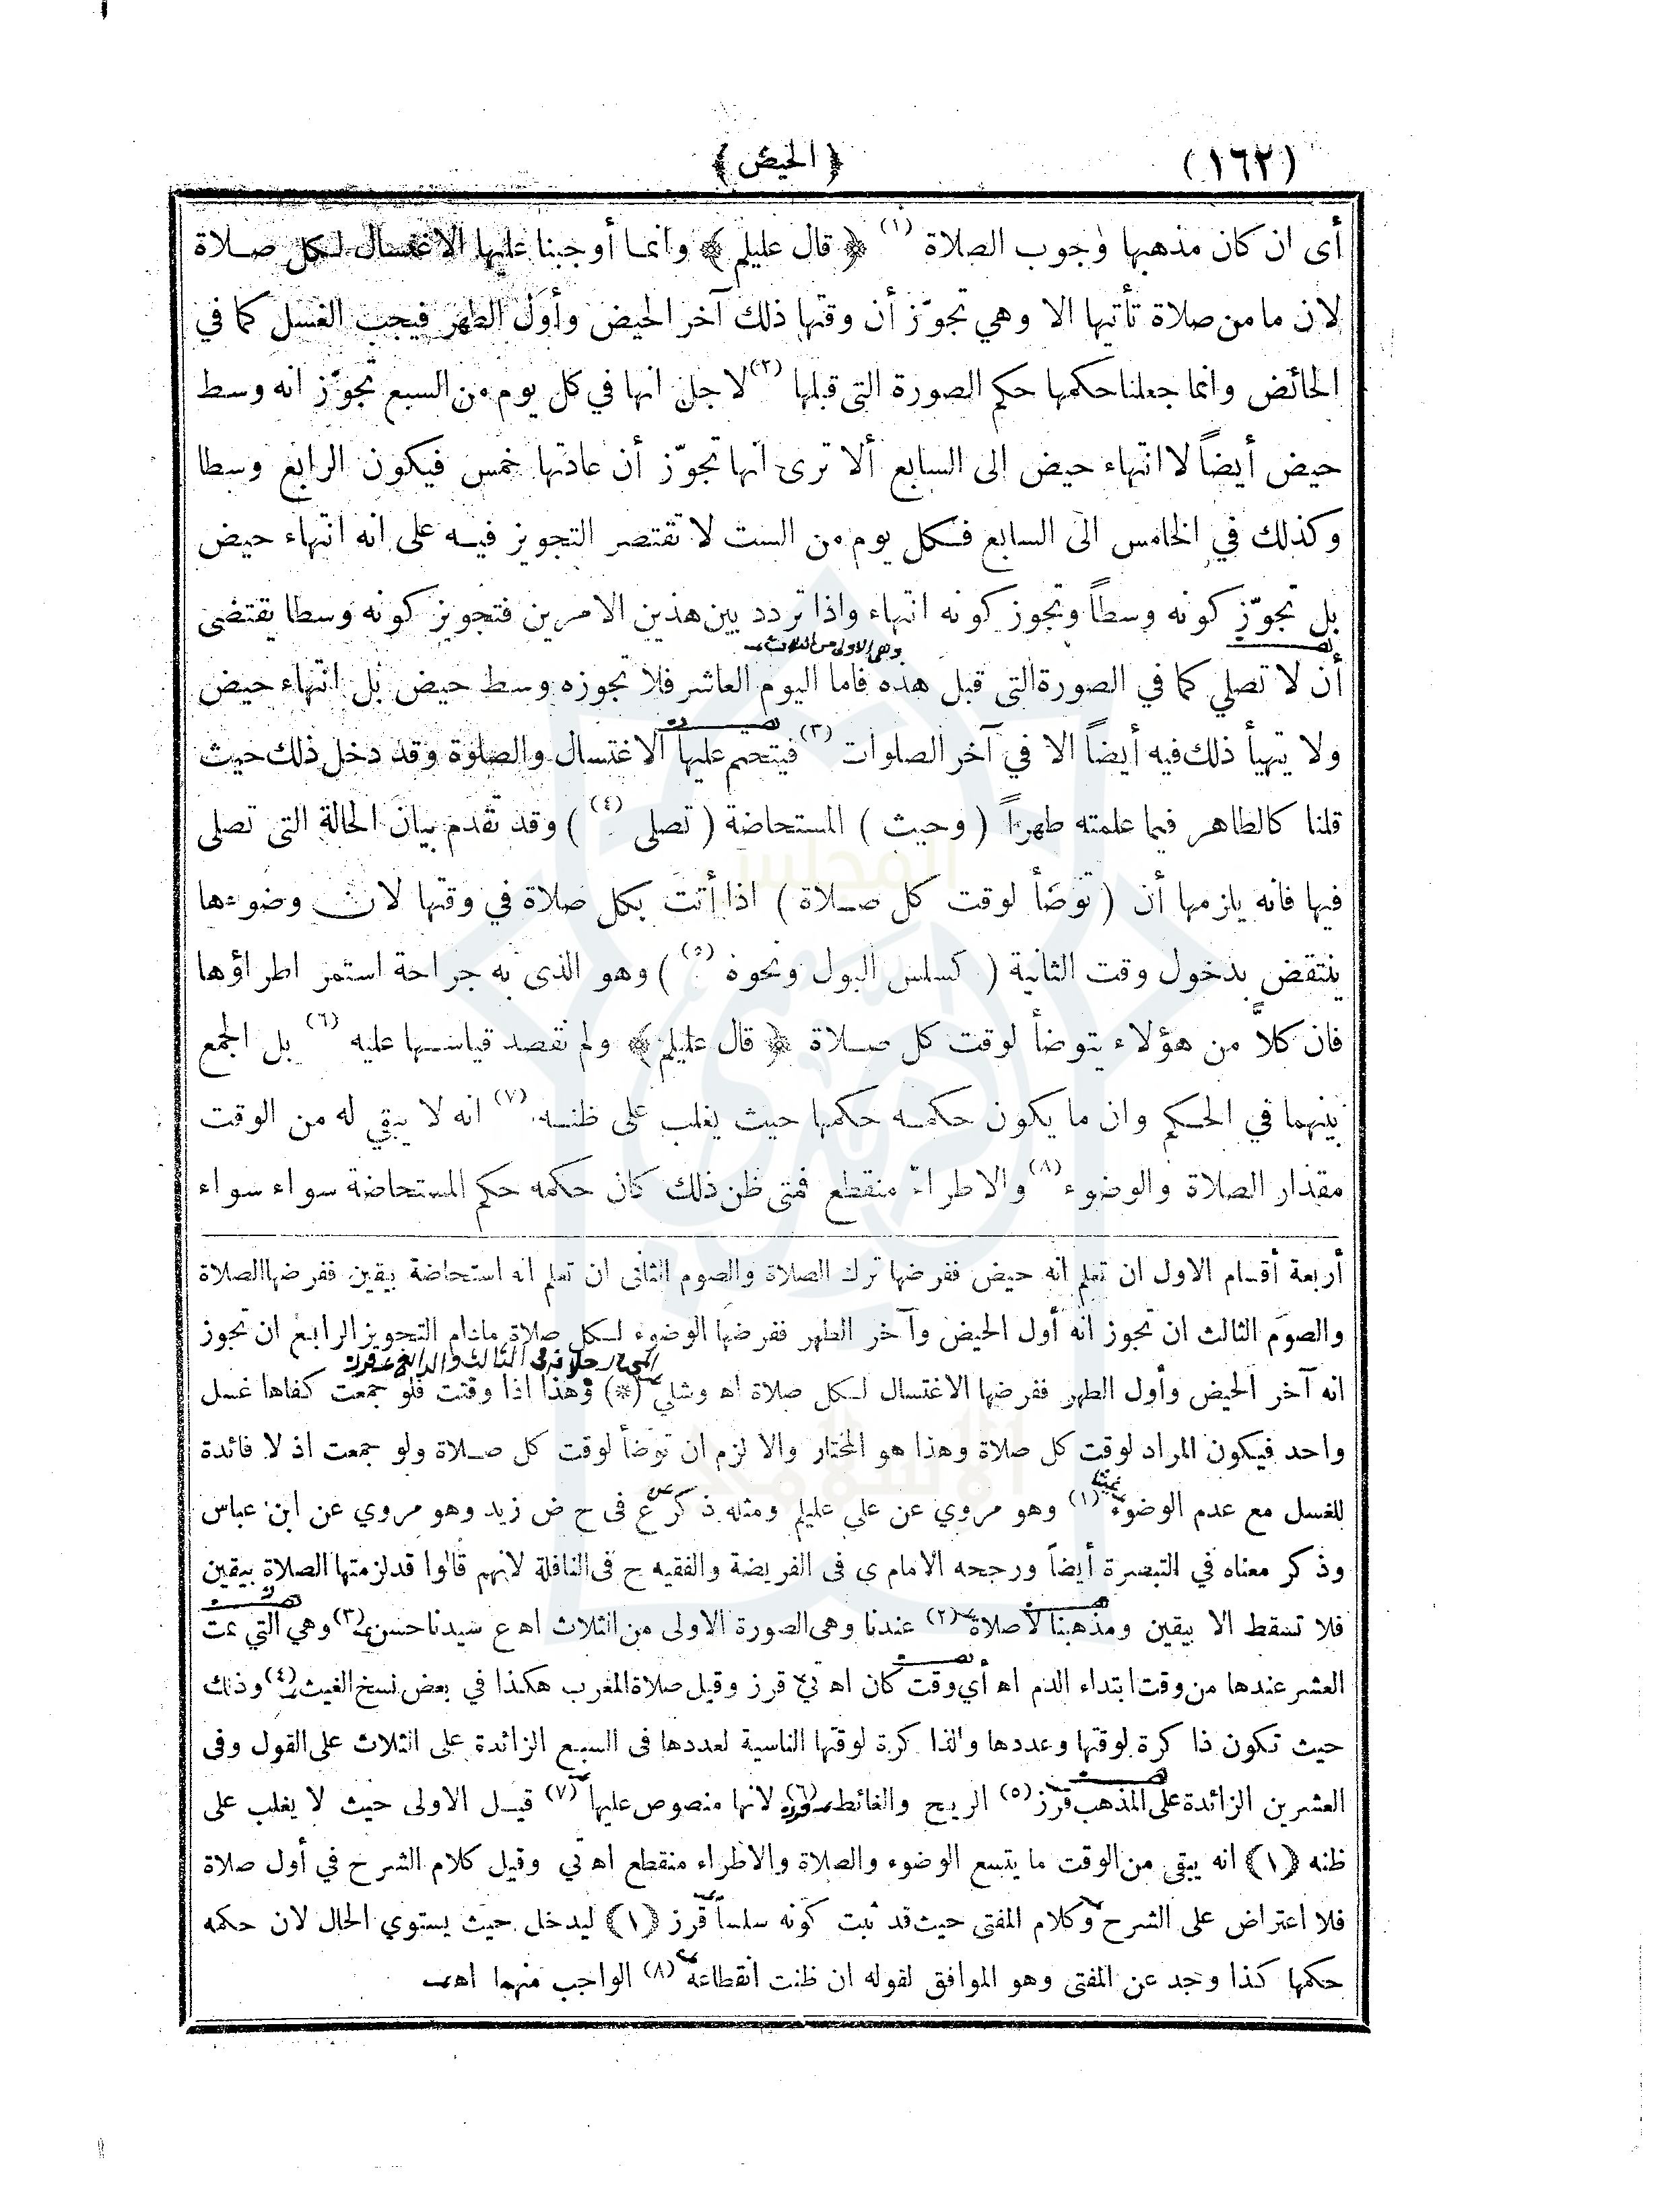 (١٦٢)
﴿ الحيض ﴾
أى ان كان مذهبها وجوب الصلاة (١) ﴿ قال عليلم ﴾ وانما أوجبنا عليها الاغتسال لكل صلاة
لان ما من صلاة تأتيها الا وهي تجوّز أن وقتها ذلك آخر الحيض وأول الطهر فيجب الغسل كما في
الحائض وانما جعلنا حكمها حكم الصورة التى قبلها (٢) لاجل انها في كل يوم من السبع تجوّز انه وسط
حيض أيضاً لا انتهاء حيض الى السابع ألا ترى انها تجوّز أن عادتها خمس فيكون الرابع وسطا
وكذلك في الخامس الى السابع فكل يوم من الست لا تقتصر التجويز فيه على انه انتهاء حيض
بل تجوّز كونه وسطاً وتجوز كونه انتهاء واذا تردد بين هذين الامرين فتجويز كونه وسطا يقتضى
وهى الاولى من الثلاث
أن لا تصلي كما في الصورة التى قبل هذه فاما اليوم العاشر فلا تجوزه وسط حيض بل انتهاء حيض
ولا يتهيأ ذلك فيه أيضاً الا في آخر الصلوات (٣) فيتحتم عليها الاغتسال والصلوة وقد دخل ذلك حيث
قلنا كالطاهر فيما علمته طهراً ( وحيث ) المستحاضة ( تصلى (٤) ) وقد تقدم بيان الحالة التى تصلى
فيها فانه يلزمها أن ( توضأ لوقت كل صلاة ) اذا أتت بكل صلاة في وقتها لان وضوءها
ينتقض بدخول وقت الثانية ( كسلس البول ونحوه (٥) ) وهو الذى به جراحة استمر اطراؤها
فان كلاًّ من هؤلاء يتوضأ لوقت كل صلاة ﴿ قال عليلم ﴾ ولم نقصد قياسها عليه (٦) بل الجمع
بينهما في الحكم وان ما يكون حكمه حكمها حيث يغلب على ظنه (٧) انه لا يبقي له من الوقت
مقدار الصلاة والوضوء (٨) والاطراء منقطع فمتى ظن ذلك كان حكمه حكم المستحاضة سواء سواء
أربعة أقسام الاول ان تعلم انه حيض ففرضها ترك الصلاة والصوم الثانى ان تعلم انه استحاضة بيقين ففرضها الصلاة
والصوم الثالث ان تجوز انه أول الحيض وآخر الطهر ففرضها الوضوء لكل صلاة مادام التجويز الرابع ان تجوز
انه آخر الحيض وأول الطهر ففرضها الاغتسال لكل صلاة اه وشلي (*) وهذا اذا وقتت فلو جمعت كفاها غسل
واحد فيكون المراد لوقت كل صلاة وهذا هو المختار والا لزم ان توضأ لوقت كل صلاة ولو جمعت اذ لا فائدة
للغسل مع عدم الوضوء (١) وهو مروي عن علي عليلم ومثله ذكر ع فى ح ض زيد وهو مروي عن ابن عباس
وذكر معناه في التبصرة أيضاً ورجحه الامام ي فى الفريضة والفقيه ح فى النافلة لانهم قالوا قد لزمتها الصلاة بيقين
فلا تسقط الا بيقين ومذهبنا لا صلاة (٢) عندنا وهى الصورة الاولى من الثلاث اه ع سيدنا حسن (٣) وهي التي تمت
العشر عندها من وقت ابتداء الدم اه أي وقت كان اه تي قرز وقبل صلاة المغرب هكذا في بعض نسخ الغيث (٤) وذلك
حيث تكون ذاكرة لوقتها وعددها والذاكرة لوقتها الناسية لعددها فى السبع الزائدة على الثلاث على القول وفى
العشرين الزائدة على المذهب قرز (٥) الريح والغائط (٦) لانها منصوص عليها (٧) قيل الاولى حيث لا يغلب على
ظنه ﴿١﴾ انه يبقى من الوقت ما يتسع الوضوء والصلاة والاطراء منقطع اه تي وقيل كلام الشرح في أول صلاة
فلا اعتراض على الشرح وكلام المفتى حيث قد ثبت كونه سلسا قرز ﴿١﴾ ليدخل حيث يستوي الحال لان حكمه
حكمها كذا وجد عن المفتى وهو الموافق لقوله ان ظنت انقطاعه (٨) الواجب منهما اه